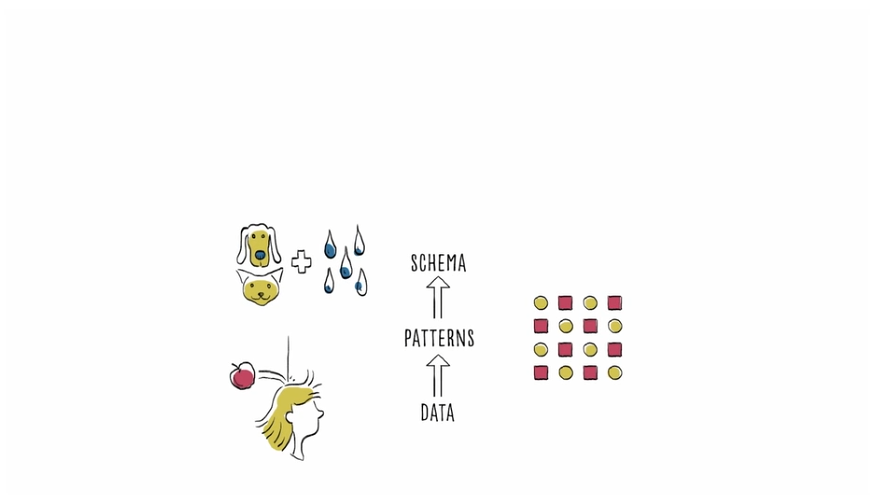 SCHEMA
PATTERNS
DATA